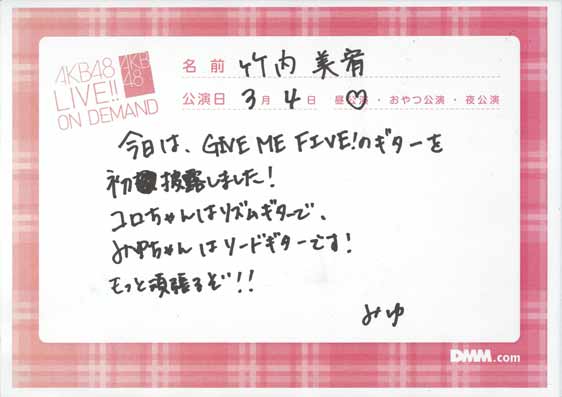 AKB48
LIVE!!
ON DEMAND
AKB
48
名前 竹内美宥
公演日 3月4日 ♡昼公演・おやつ公演・夜公演
今日は、GIVE ME FIVE!のギターを
初披露しました!
コロちゃんはリズムギターで、
みゆちゃんはリードギターです!
もっと頑張るぞ!!
みゆ
DMM.com